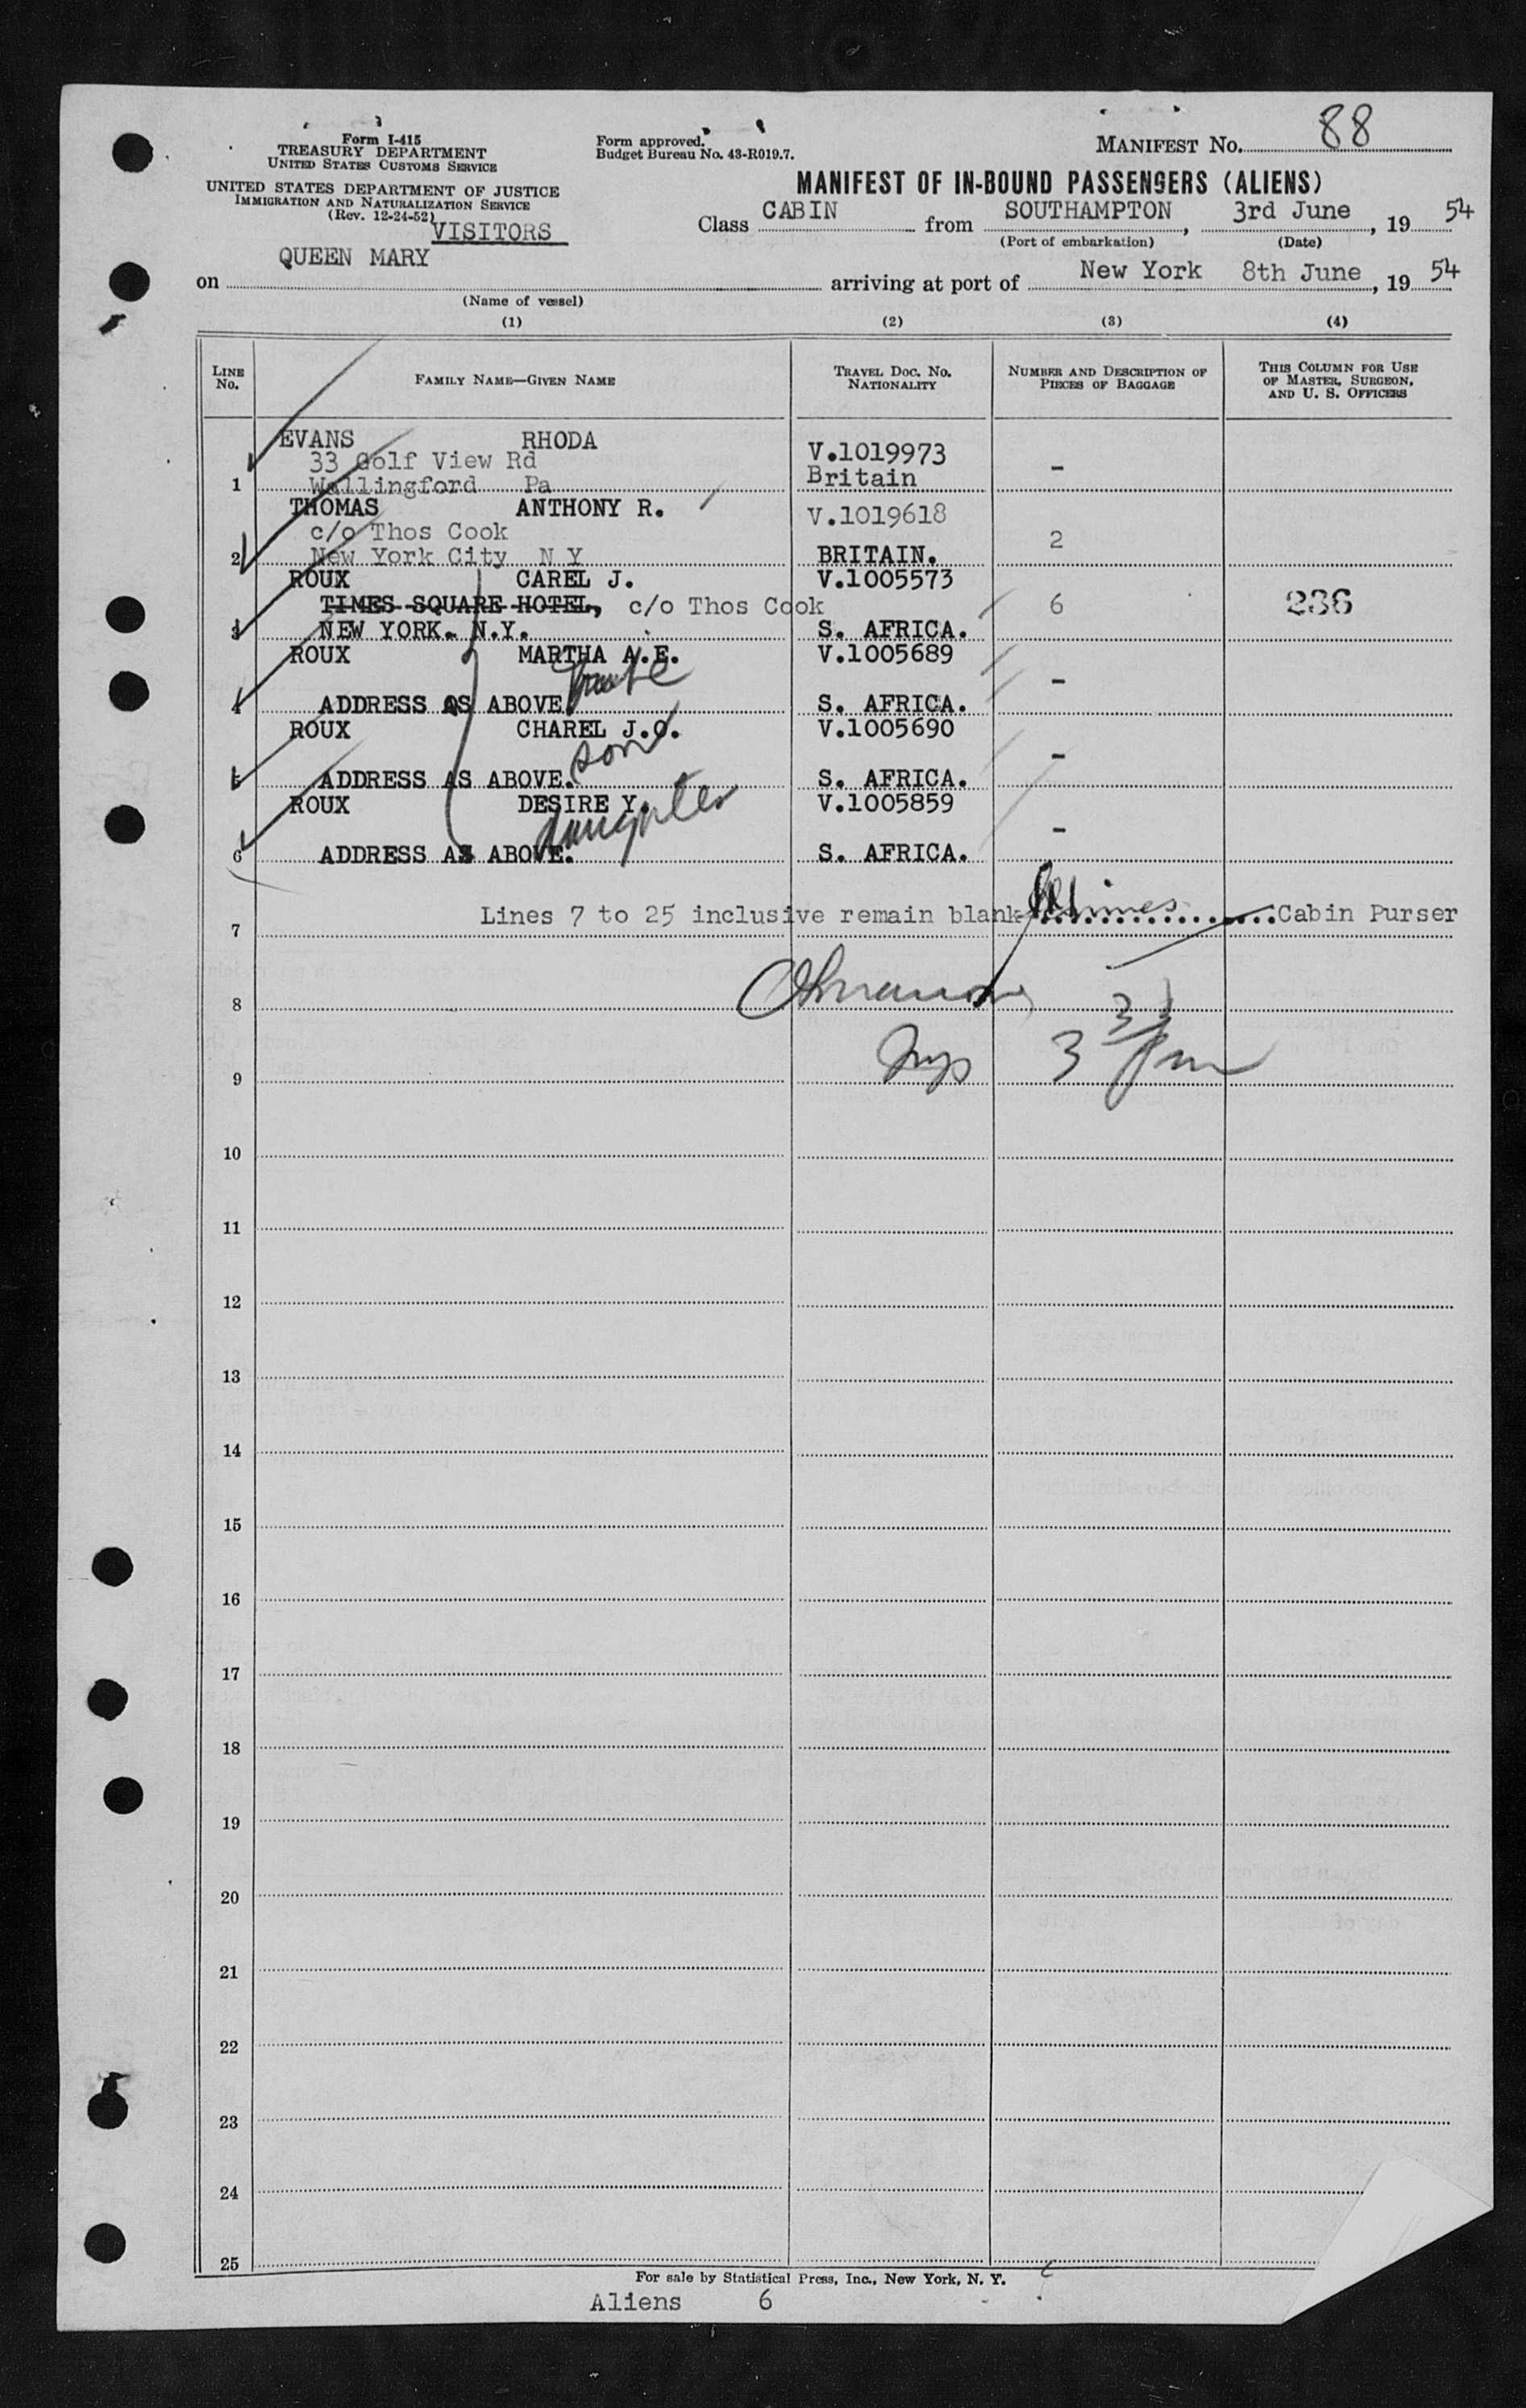 Form I-415
TREASURY DEPARTMENT
UNITED STATES CUSTOMS SERVICE
UNITED STATES DEPARTMENT OF JUSTICE
IMMIGRATION AND NATURALIZATION SERVICE
(Rev. 12-24-52)
VISITORS
Form approved.
Budget Bureau No. 43-R019.7.
MANIFEST NO. 88
MANIFEST OF IN-BOUND PASSENGERS (ALIENS)
Class CABIN from SOUTHAMPTON, 3rd June, 1954
(Port of embarkation) (Date)
on QUEEN MARY arriving at port of New York 8th June, 1954
(Name of vessel)
(1) (2) (3) (4)
LINE NO. FAMILY NAME—GIVEN NAME TRAVEL DOC. NO. NATIONALITY NUMBER AND DESCRIPTION OF PIECES OF BAGGAGE THIS COLUMN FOR USE OF MASTER, SURGEON, AND U. S. OFFICERS
EVANS RHODA V.1019973
33 Golf View Rd -
1 Wallingford Pa Britain
THOMAS ANTHONY R. V.1019618
c/o Thos Cook 2
2 New York City N Y BRITAIN.
ROUX CAREL J. V.1005573
TIMES SQUARE HOTEL, c/o Thos Cook 6 236
3 NEW YORK. N.Y. S. AFRICA.
ROUX MARTHA A.E. V.1005689
-
4 ADDRESS AS ABOVE. S. AFRICA.
ROUX CHAREL J.O. V.1005690
son -
5 ADDRESS AS ABOVE. S. AFRICA.
ROUX DESIRE Y. V.1005859
daughter -
6 ADDRESS AS ABOVE. S. AFRICA.
Lines 7 to 25 inclusive remain blank Cabin Purser
7
8
9
10
11
12
13
14
15
16
17
18
19
20
21
22
23
24
25
For sale by Statistical Press, Inc., New York, N. Y.
Aliens 6